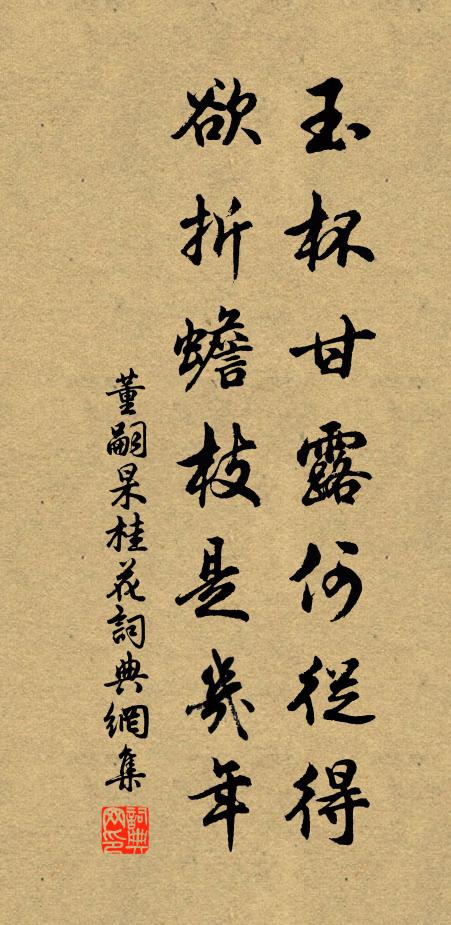 玉杯甘露何從得
欲折蟾枝是幾年
董嗣杲桂花詞典網集
詞典網印